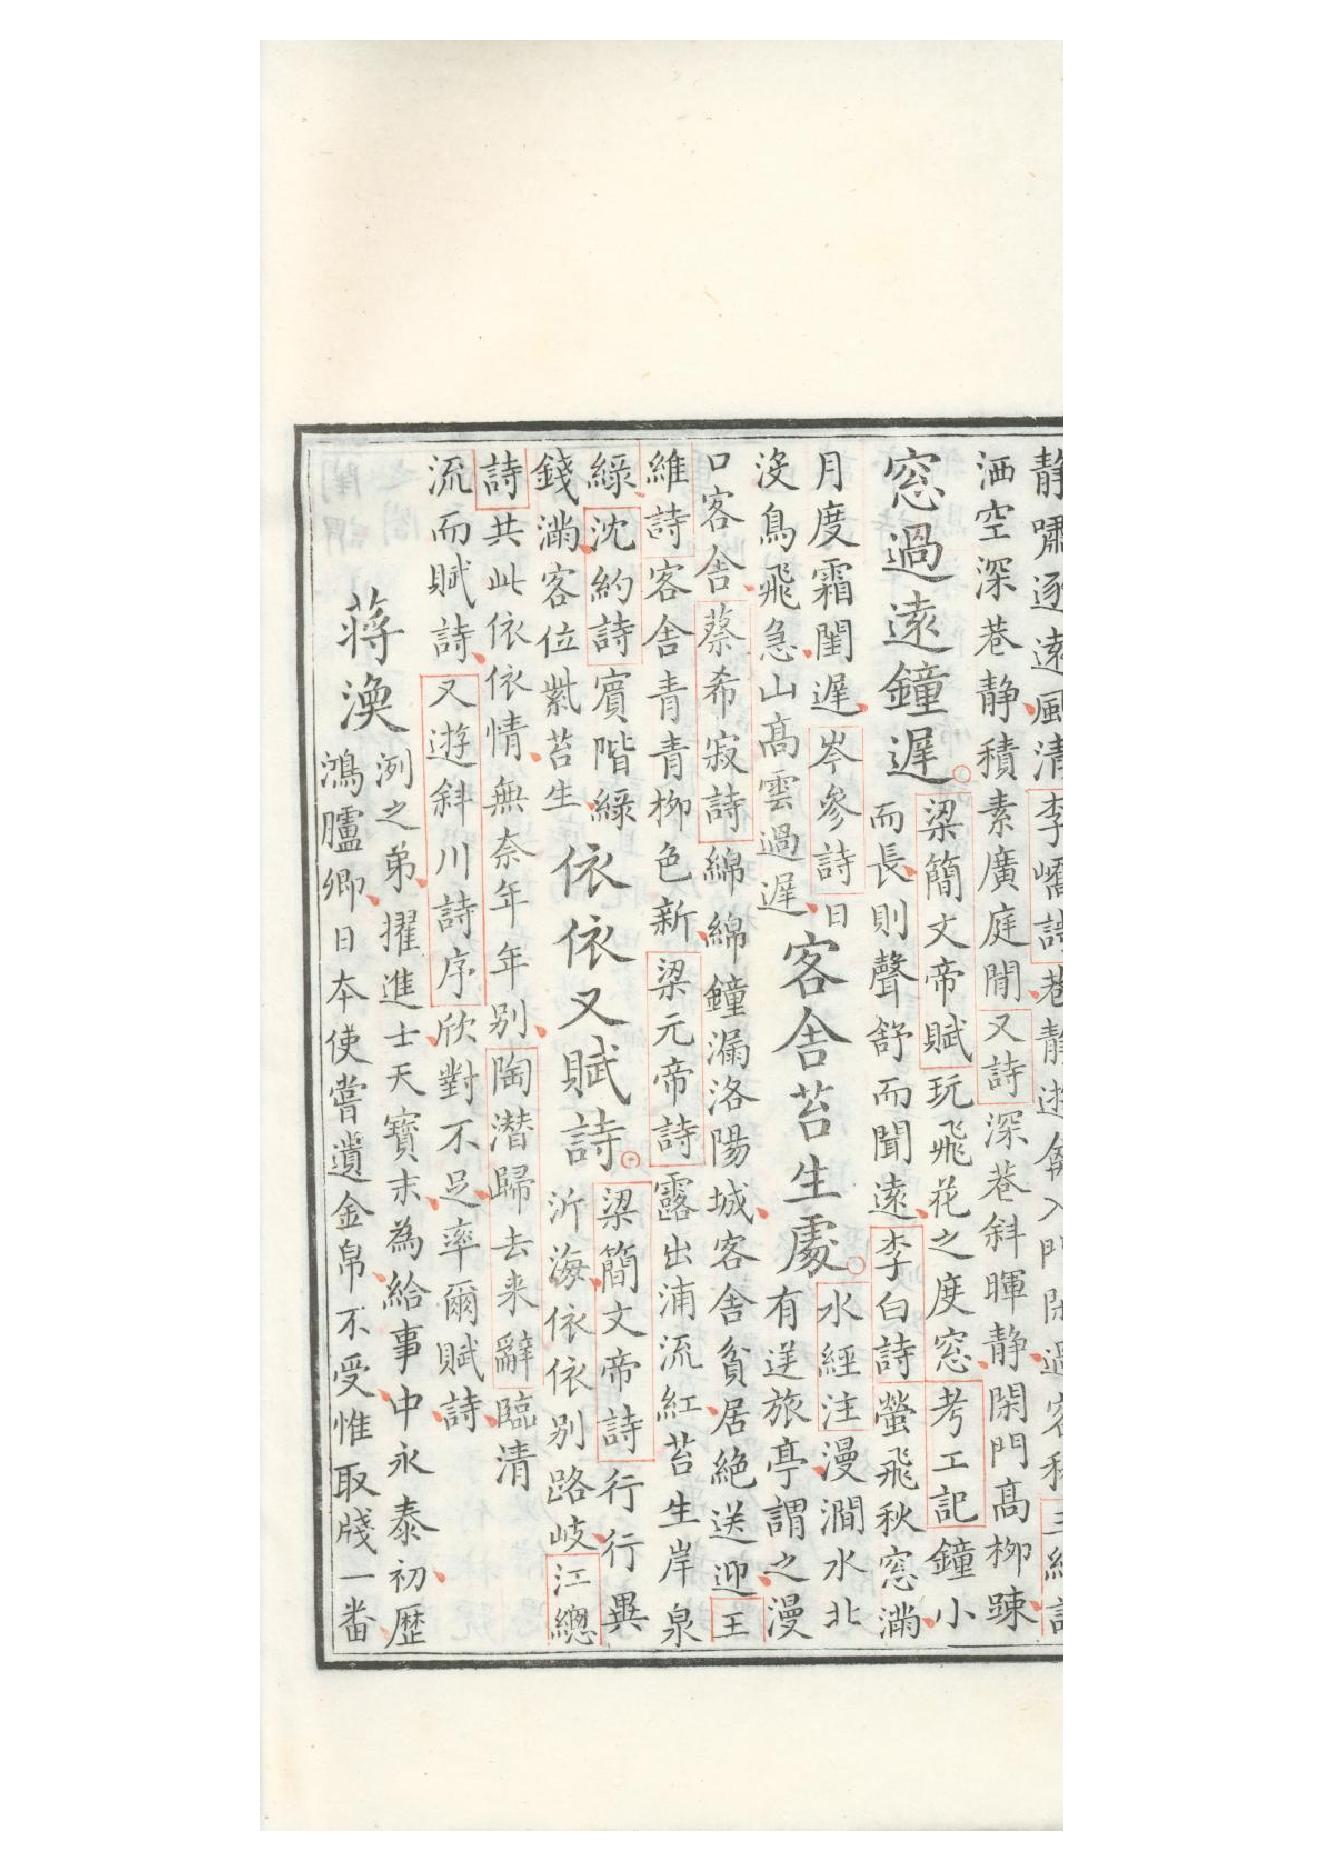 静嘯逐遠風清李嶠詩巷静遊入門閑過客稀王維詩
洒空深巷静積素廣庭閒又詩深巷斜暉静閑門髙栁踈
窓過遠鐘遲
梁簡文帝賦玩飛花之度窓考工記鐘小
而長則聲舒而聞遠李白詩螢飛秋窓滿
月度霜閨遲岑參詩日
没鳥飛急山髙雲過遲
客舍苔生處
水經注漫澗水北
有逆旅亭謂之漫
口客舍蔡希寂詩綿綿鐘漏洛陽城客舍貧居絶送迎王
維詩客舍青青栁色新梁元帝詩露出浦流紅苔生岸泉
綠沈約詩賓階綠
錢滿客位紫苔生
依依又賦詩
梁簡文帝詩行行異
沂海依依别路岐江總
詩共此依依情無奈年年别陶潜歸去来辭臨清
流而賦詩又遊斜川詩序欣對不足率爾賦詩
蔣渙
洌之弟擢進士天寶末為給事中永泰初歴
鴻臚卿日本使嘗遺金帛不受惟取牋一番